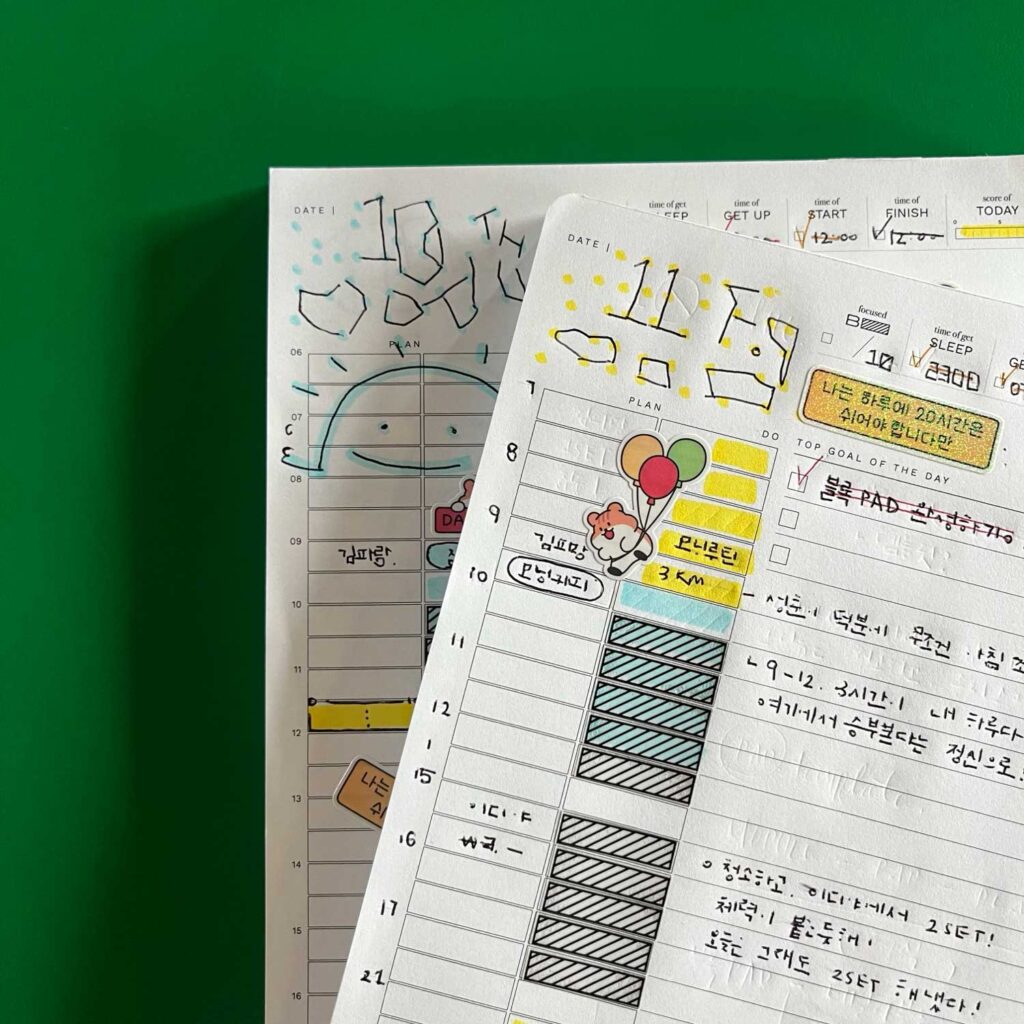 DATE |
18
TH
time of get
time of get
GET UP
time of
START
12:00
time of
FINISH
12:00
score of
TODAY
PLAN
06
07
08
09
10
11
12
13
14
15
16
DA
나는
쉬
DATE |
11
focused
B
10
time of get
SLEEP
2300
GE
나는 하루에 20시간은
쉬어야 합니다만
PLAN
DO
TOP GOAL OF THE DAY
블록 PAD 완성하기
7
8
9
10
11
12
1
15
16
17
21
모닝루틴
3 KM
모닝커피
이디야
성훈이 덕분에 무조건 아침 조
9-12. 3시간이 내 하루다
여기에서 승부본다는 정신으로!
청소하고. 이디야에서 2SET!
체력이 붙는듯해!
오늘은 그래도 2SET 해냈다!